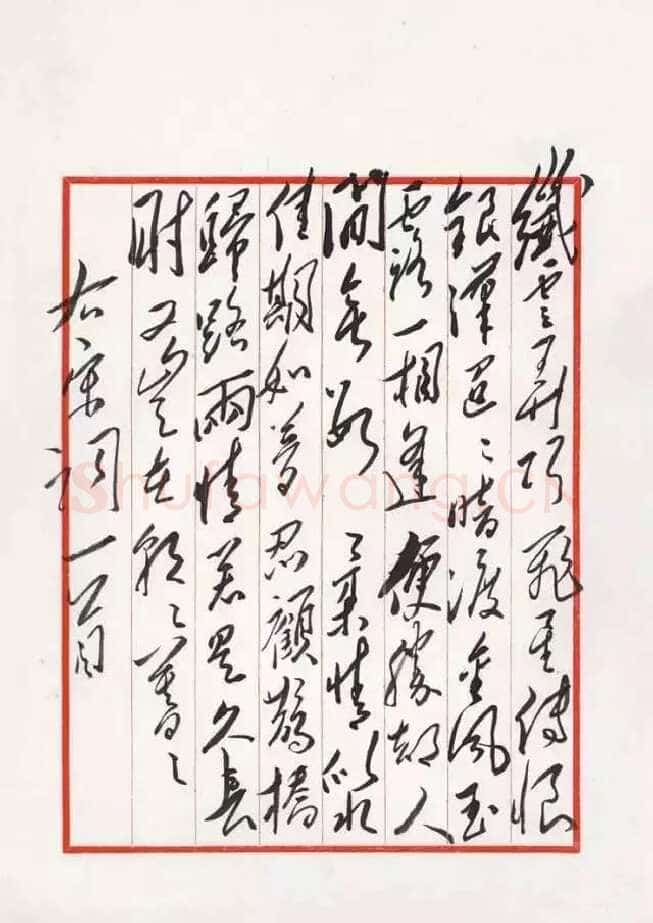 纖雲弄巧飛星傳恨
銀漢迢〻暗渡金風玉
露一相逢便勝却人
間無數 柔情似水
佳期如夢忍顧鵲橋
歸路兩情若是久長
時又豈在朝〻暮〻
右宋詞一首
Shufawang.CN